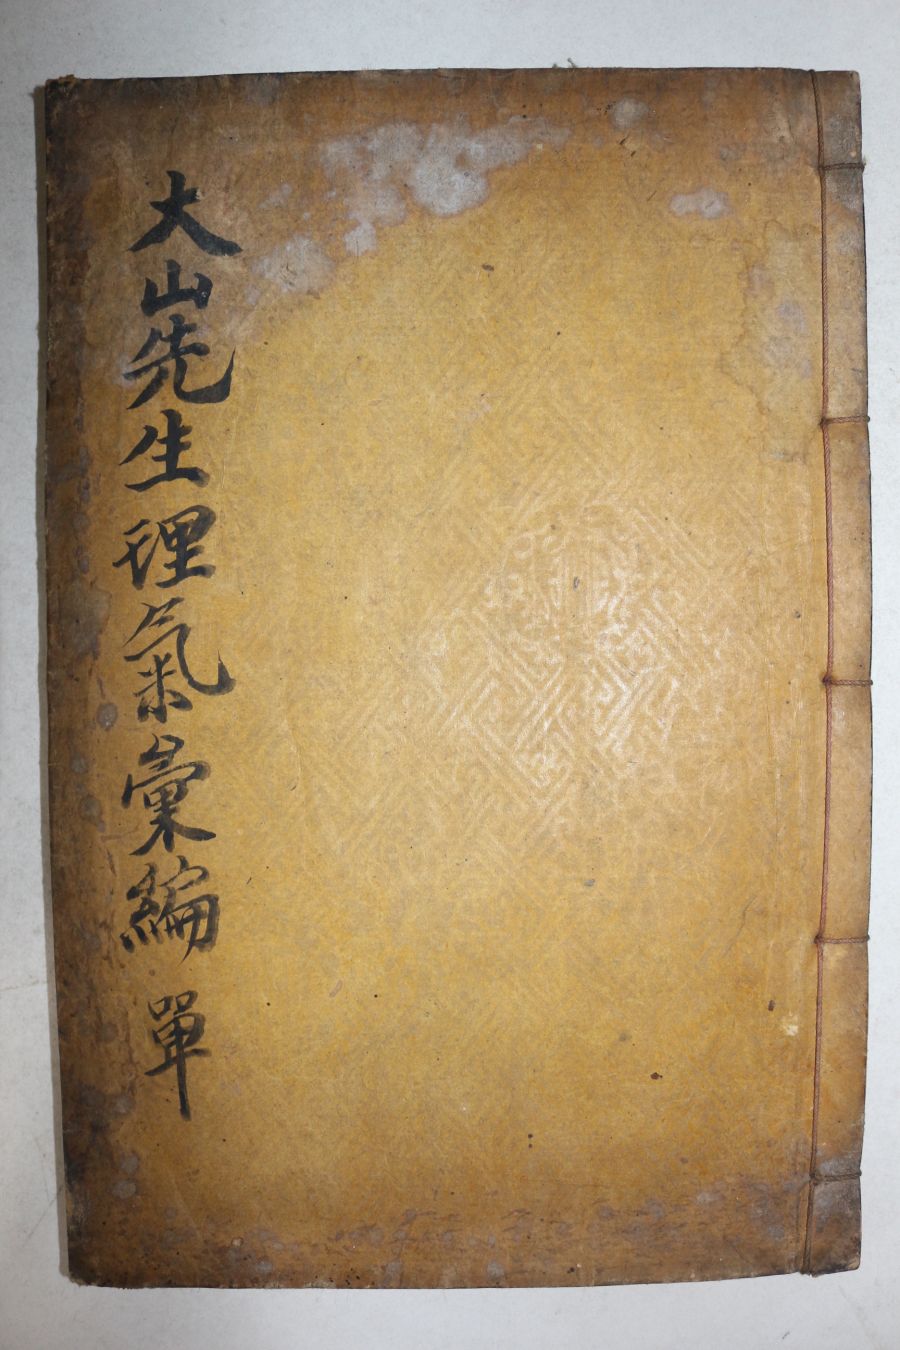 大山先生理氣彙編 單